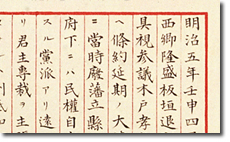 明治五年壬申四
西鄉隆盛板垣退
具視參議木戸孝
ヘ條約延期ノ大
ニ當時廢藩立縣
府下ニハ民權自
スル黨派アリ遠
リ君主專裁ヲ主